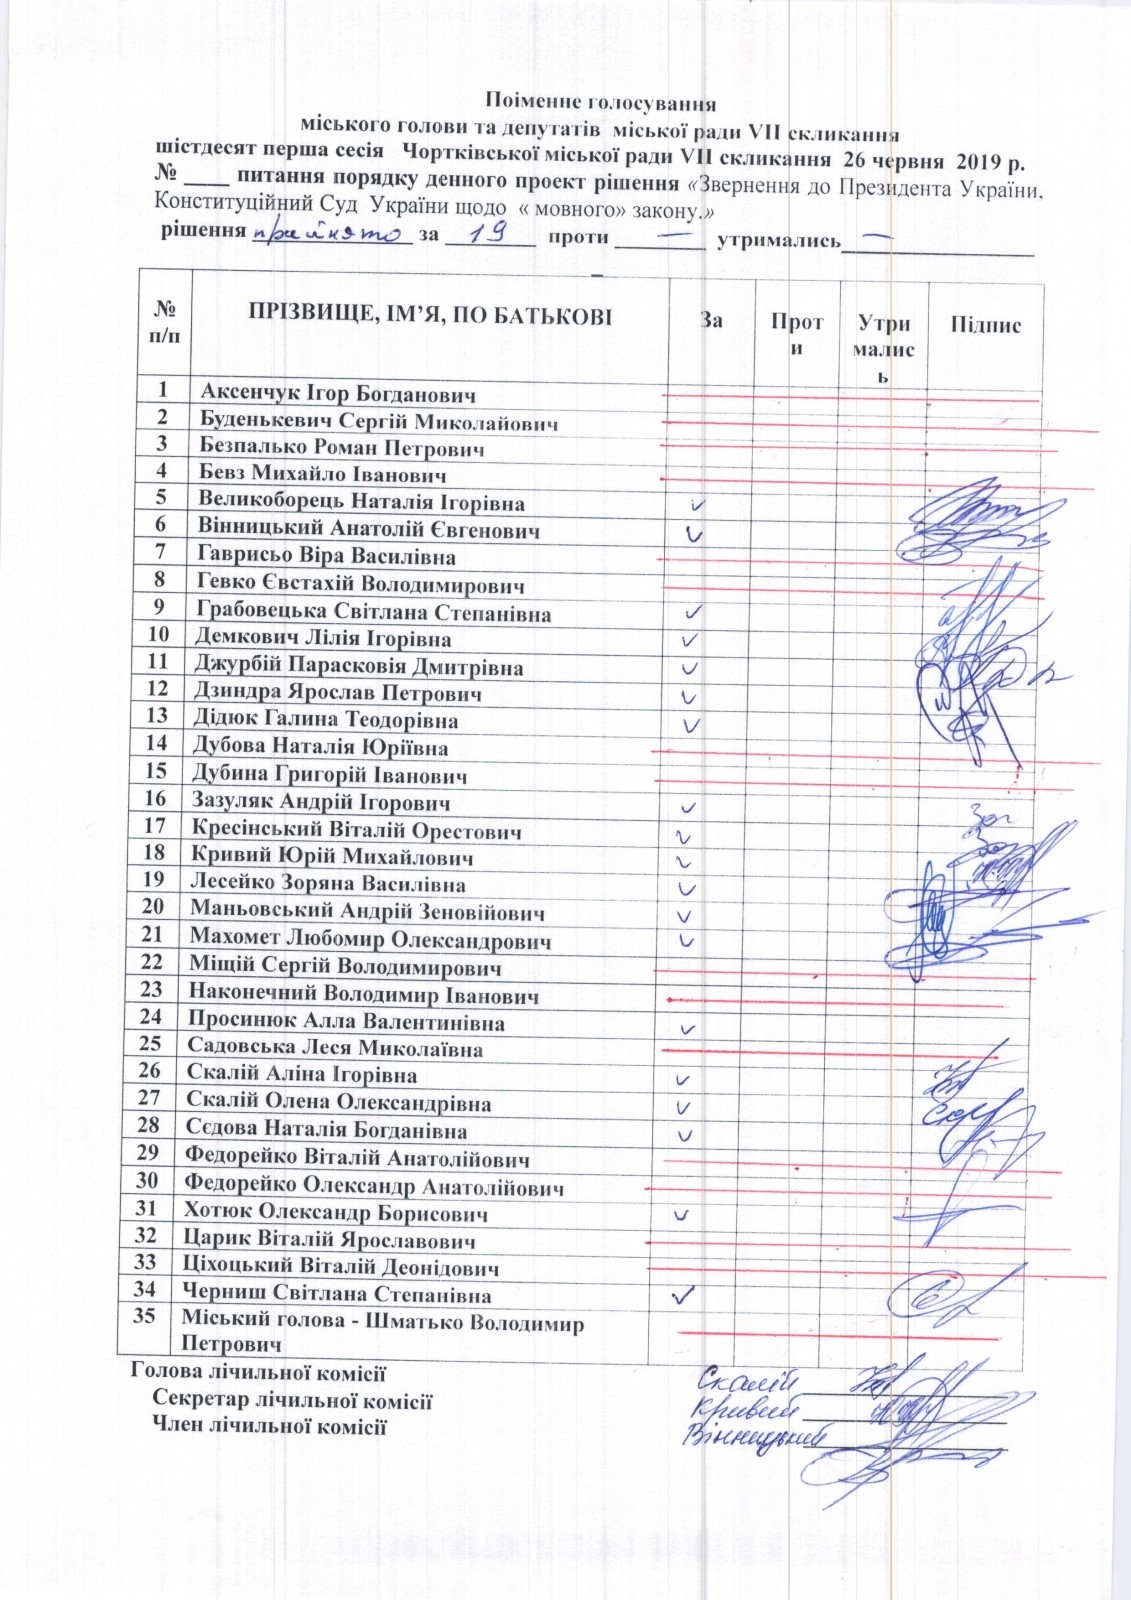 Поіменне голосування
міського голови та депутатів міської ради VII скликання
шістдесят перша сесія Чортківської міської ради VII скликання 26 червня 2019 р.
№ ____ питання порядку денного проект рішення «Звернення до Президента України,
Конституційний Суд України щодо « мовного» закону.»
рішення прийнято за 19 проти — утримались —
№ п/п ПРІЗВИЩЕ, ІМ’Я, ПО БАТЬКОВІ За Проти Утрималис ь Підпис
1 Аксенчук Ігор Богданович
2 Буденькевич Сергій Миколайович
3 Безпалько Роман Петрович
4 Бевз Михайло Іванович
5 Великоборець Наталія Ігорівна ✓
6 Вінницький Анатолій Євгенович ✓
7 Гаврисьо Віра Василівна
8 Гевко Євстахій Володимирович
9 Грабовецька Світлана Степанівна ✓
10 Демкович Лілія Ігорівна ✓
11 Джурбій Парасковія Дмитрівна ✓
12 Дзиндра Ярослав Петрович ✓
13 Дідюк Галина Теодорівна ✓
14 Дубова Наталія Юріївна
15 Дубина Григорій Іванович
16 Зазуляк Андрій Ігорович ✓
17 Кресінський Віталій Орестович ✓
18 Кривий Юрій Михайлович ✓
19 Лесейко Зоряна Василівна ✓
20 Маньовський Андрій Зеновійович ✓
21 Махомет Любомир Олександрович ✓
22 Міщій Сергій Володимирович
23 Наконечний Володимир Іванович
24 Просинюк Алла Валентинівна ✓
25 Садовська Леся Миколаївна
26 Скалій Аліна Ігорівна ✓
27 Скалій Олена Олександрівна ✓
28 Сєдова Наталія Богданівна ✓
29 Федорейко Віталій Анатолійович
30 Федорейко Олександр Анатолійович
31 Хотюк Олександр Борисович ✓
32 Царик Віталій Ярославович
33 Ціхоцький Віталій Деонідович
34 Черниш Світлана Степанівна ✓
35 Міський голова - Шматько Володимир
Петрович
Голова лічильної комісії Скалій
Секретар лічильної комісії Кривий
Член лічильної комісії Вінницький